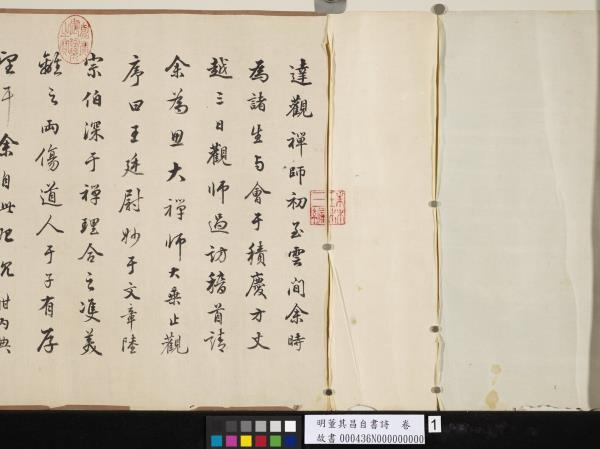 達觀禪師初至雲間余時
為諸生与會于積慶方丈
越三日觀師過訪稽首請
余為思大禪師大乘止觀
序曰王廷尉妙于文章陸
宗伯深于禪理合之雙美
離之兩傷道人于子有厚
望耳余自此始沉酣内典
明董其昌自書詩 卷
故書 000436N000000000
1